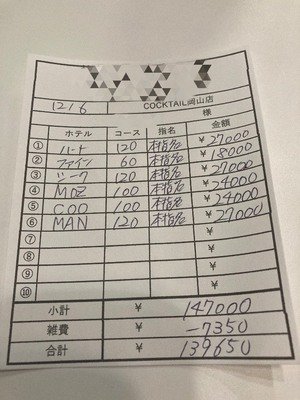 12/6
COCKTAIL岡山店
様
ホテル コース 指名 金額
① ハート 120 本指名 ¥27000
② ファイン 60 本指名 ¥18000
③ シーク 120 本指名 ¥27000
④ MOZ 100 本指名 ¥24000
⑤ COO 100 本指名 ¥24000
⑥ MAN 120 本指名 ¥27000
⑦ ¥
⑧ ¥
⑨ ¥
⑩ ¥
小計 ¥ 147000
雑費 ¥ -7350
合計 ¥ 139650